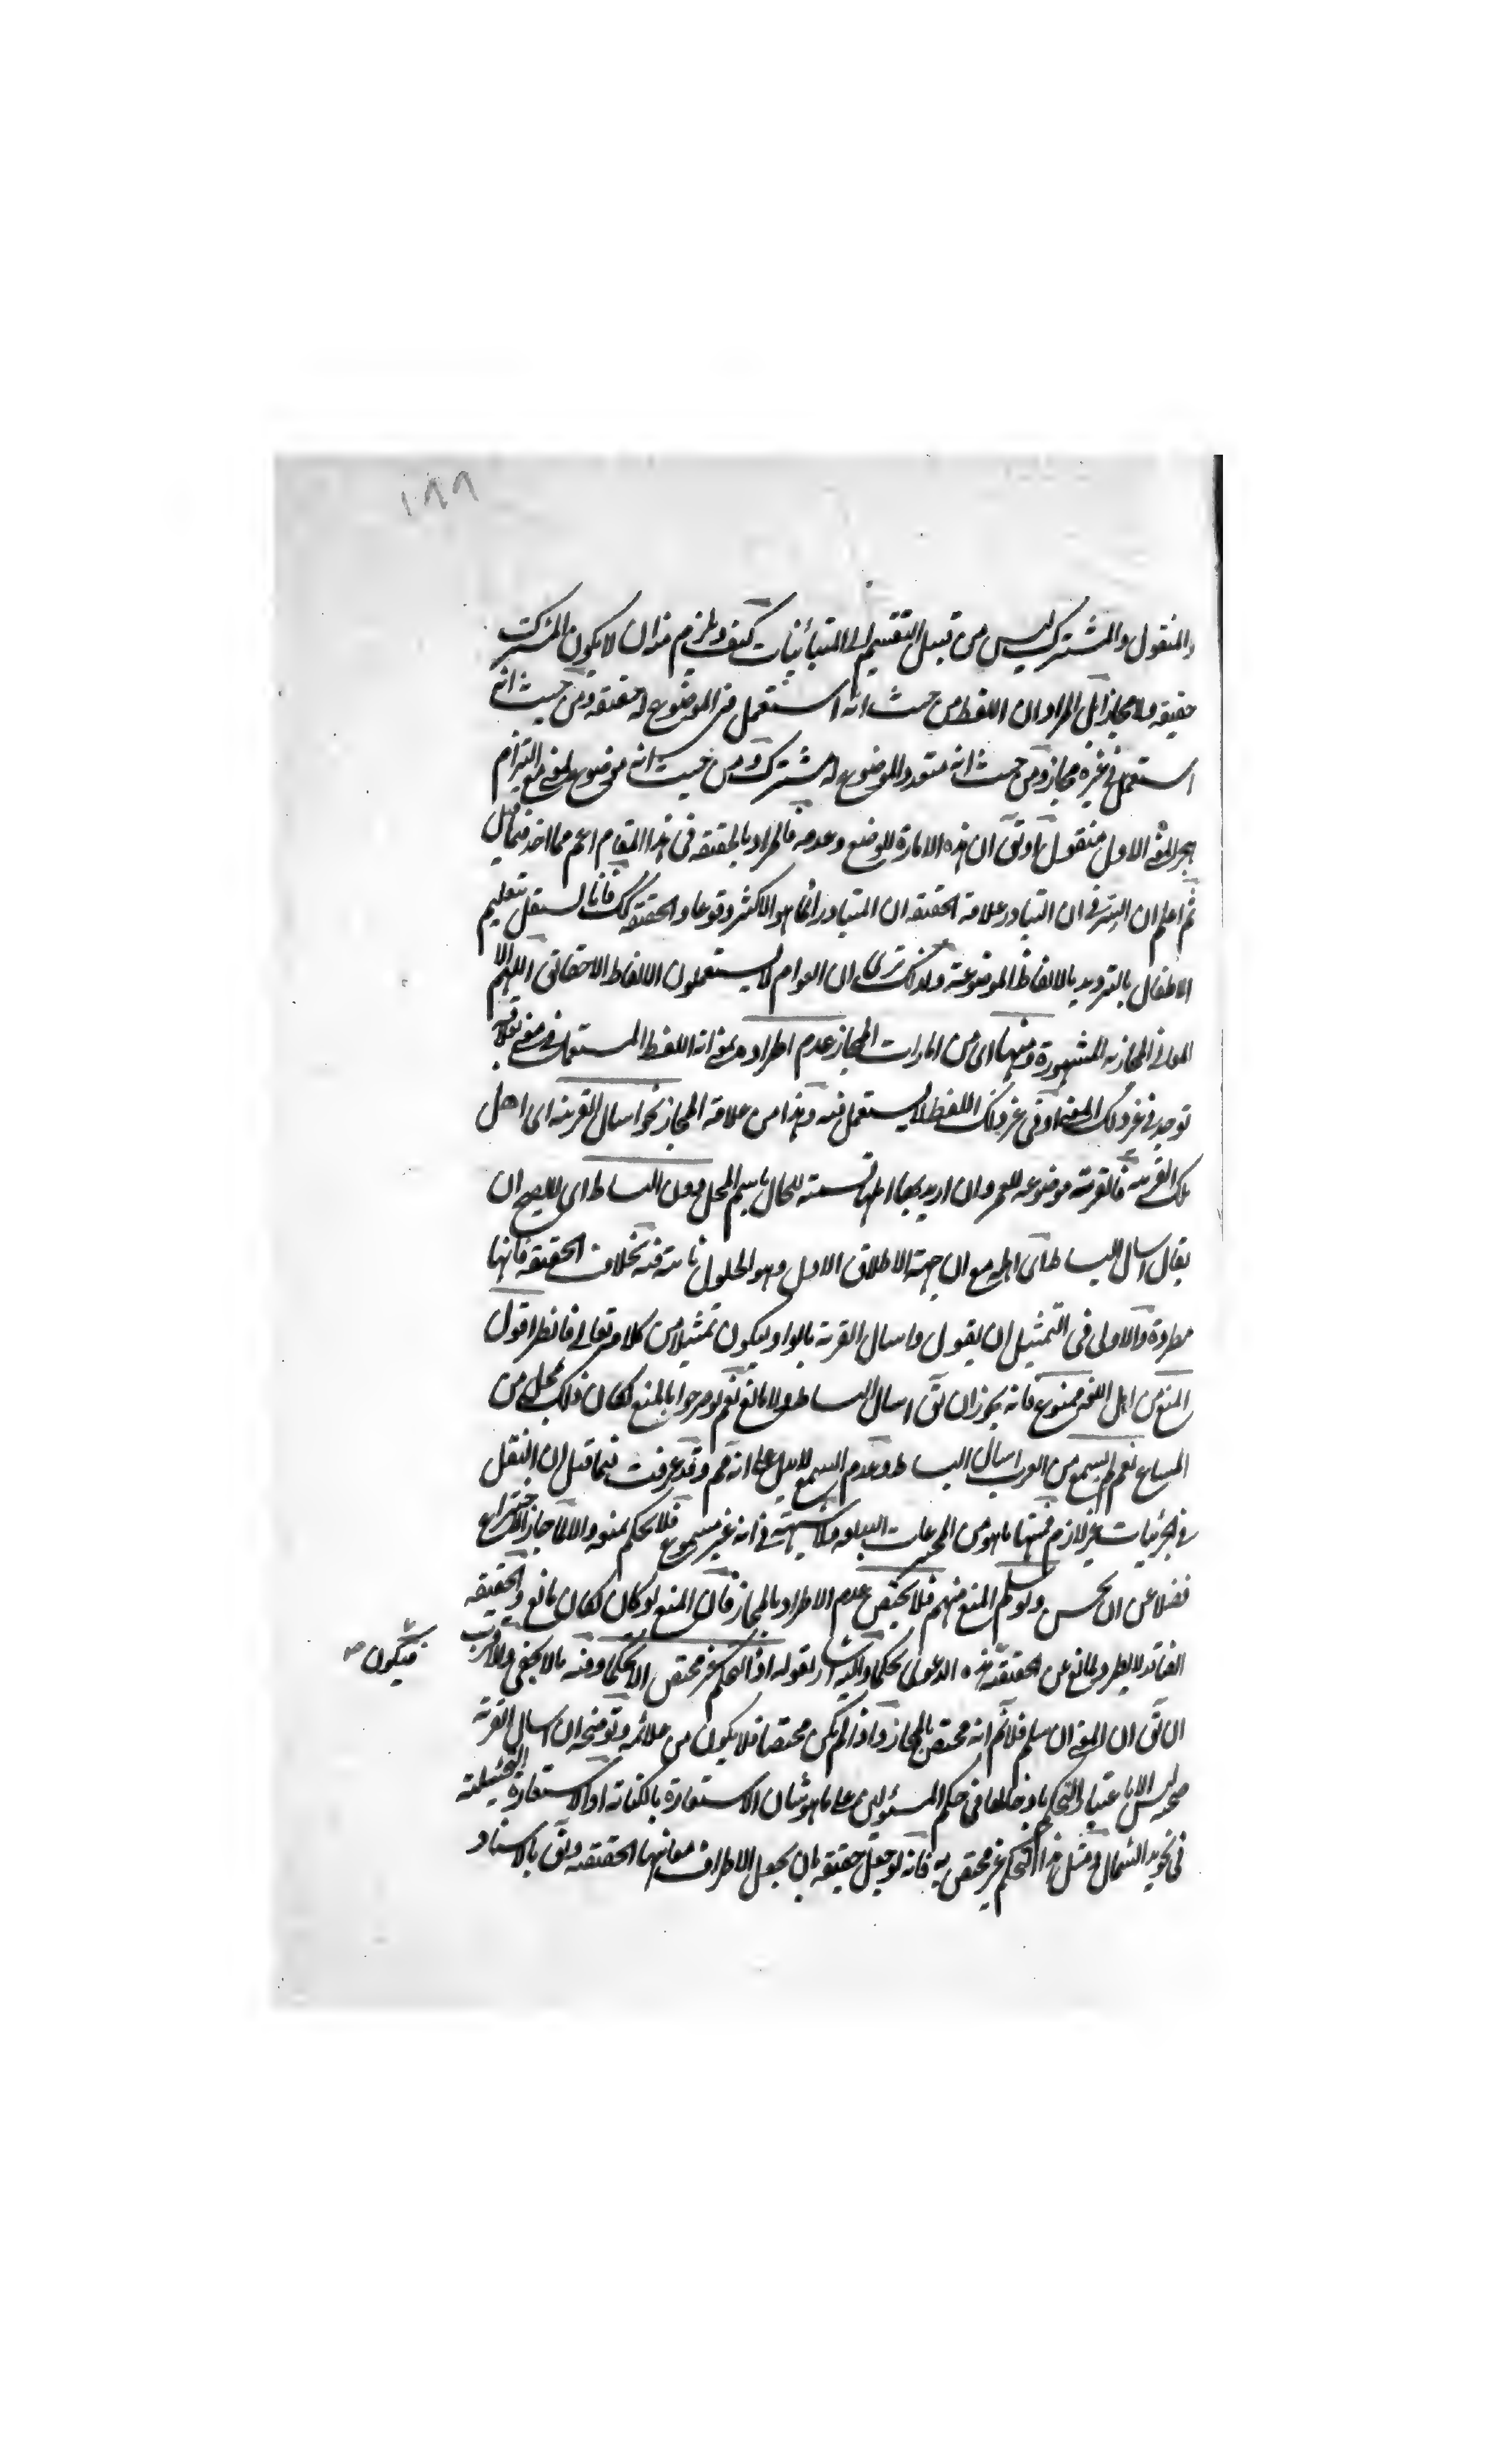 ١٨٩
والمنقول والمشترك ليس من قبيل التقسيم الى المتبائنات كيف ويلزم منه ان لا يكون المشترك
حقيقة ولا مجازا بل المراد ان اللفظ من حيث انه استعمل فى الموضوع له حقيقة ومن حيث انه
استعمل فى غيره مجاز ومن حيث انه متعدد الموضوع له مشترك ومن حيث انه موضوع لمعنى مع التزام
هجر المعنى الاول منقول او نق ان هذه الامارة للوضع وعدمه فالمراد بالحقيقة فى هذا المقام اعم مما اخذ فيما قبل
ثم اعلم ان السر فى ان التبادر علامة الحقيقة ان المتبادر انما هو الاكثر وقوعا والحقيقة كك فانا نستقل بتعليم
الاطفال بالترديد بالالفاظ الموضوعة ولذلك ترى ان العوام لا يستعملون الالفاظ الا حقائق اللهم الا
المعانى المجازية المشهورة ومنها اى من امارات المجاز عدم اطراده بمعنى انه اللفظ المستعمل فى معنى لعلاقة
توجد فى غير ذلك المعنى او فى غير ذلك اللفظ لا يستعمل فيه وهذا من علامة المجاز نحو اسال القرية اى اهل
تلك القرية فالقرية موضوعة للعمران اريد بها اهلها تسمية للحال باسم المحل دون البساط اى لا يصح ان
يقال اسال البساط اى اهله مع ان جهة الاطلاق الاول وهو الحلول ثابتة فيه بخلاف الحقيقة فانها
مطردة والاولى فى التمثيل ان يقول واسال القرية بالواو ليكون تمثيلا من كلامه تعالى فانظر اقول
المنع من اهل اللغة ممنوع فانه يجوز ان نق اسال البساط ولا مانع نعم لو صرحوا بالمنع لكان ذلك محل من
السماع نعم لم يسمع من العرب اسال البساط وعدم السمع لا يدل على انه مم وقد عرفت فيما قبل ان النقل
فى الجزئيات غير لازم فمنها ما هو من المخترعات البليغة ولا شبهة فى انه غير مسموع فلا نحكم بمنعه والا لما جاز الاختراع
فضلا عن ان يحسن ولو سلم المنع منهم فلا يختص عدم الاطراد بالمجاز فان المنع لو كان لكان لمانع والحقيقة
ايضا قد لا يطرد لمانع عن الحقيقة هذه الدعوى تحكما واليه اشار بقوله اذ التحكم غير مختص الا تحكما وفيه ما لا يخفى والاقرب
فيكون صح
ان نق ان المنع ان سلم فلا نم انه مختص بالمجاز واذا لم يكن مختصا فلا يكون من علائمه وتوضيحه ان اسال القرية
صحته ليس الا باعتبار التحكم بادخالها فى حكم المسئولين على ما هو شان الاستعارة بالكناية او الاستعارة التخييلية
فى نحو يد الشمال ومثل هذا التحكم غير مختص به فانه لو جعل حقيقة بان يجعل الاطراف معانيها الحقيقية ونق بالاسناد